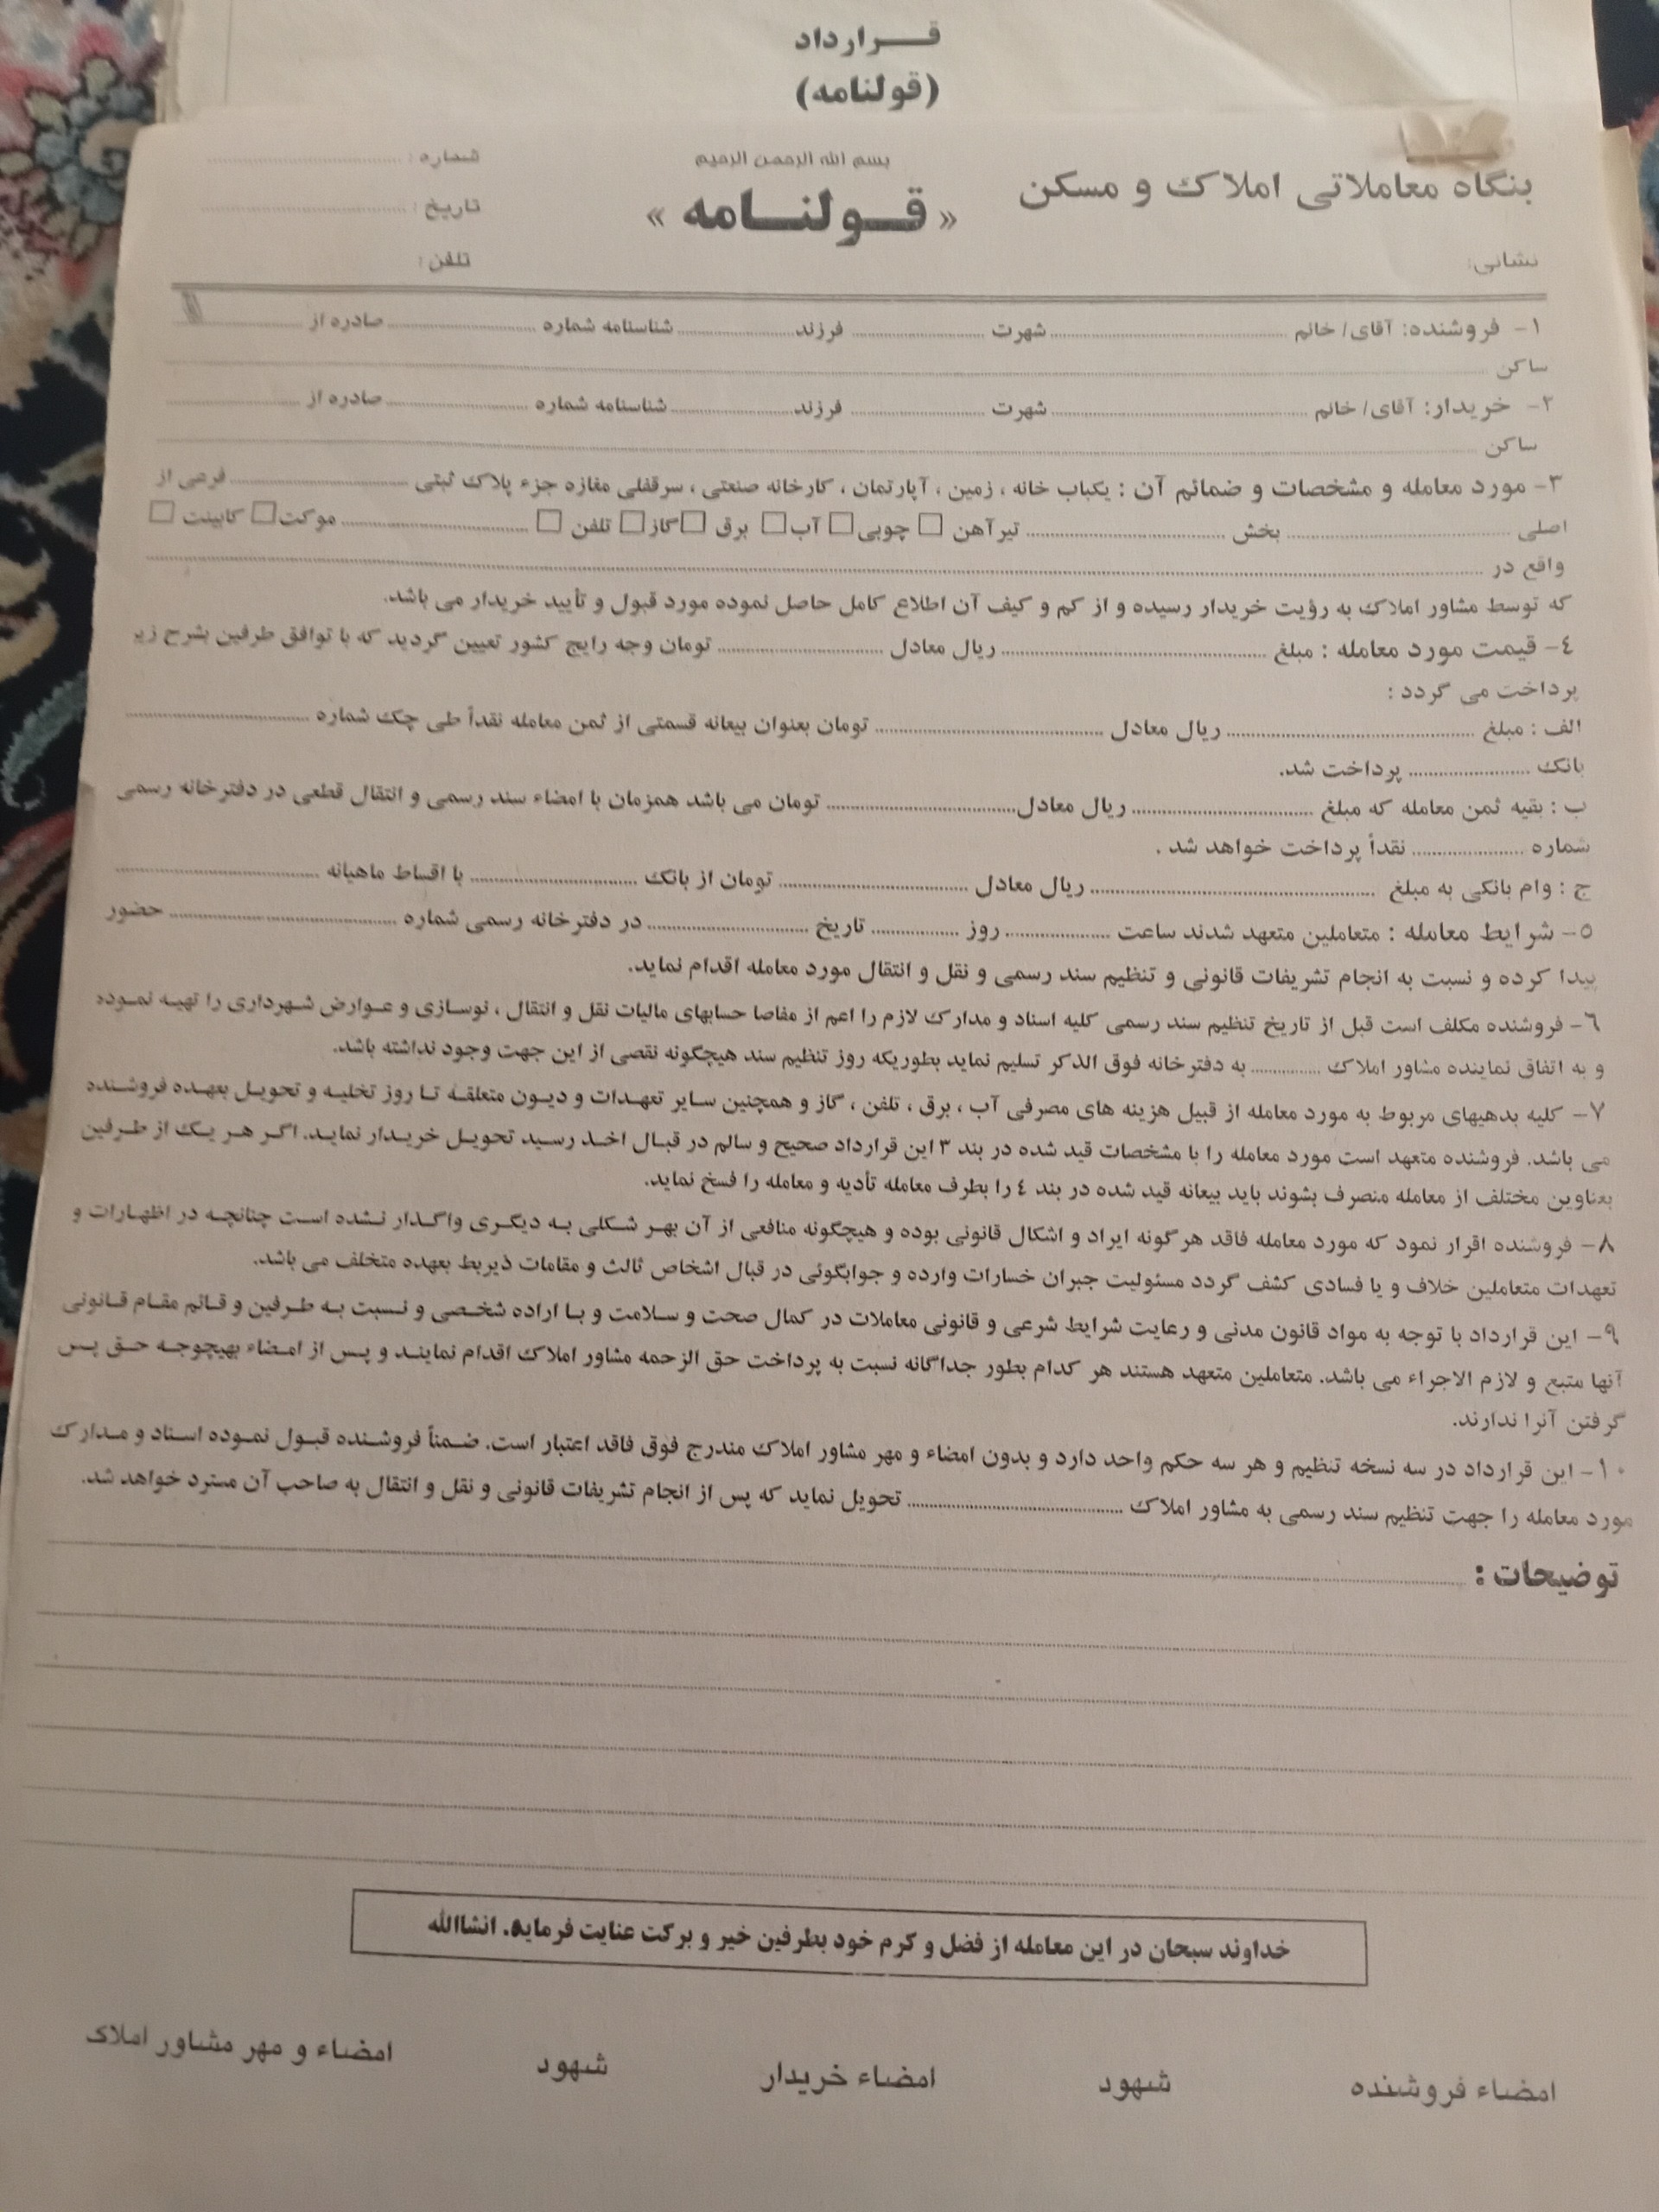 قـــرارداد
(قولنامه)
بسم الله الرحمن الرحیم
بنگاه معاملاتی املاک و مسکن
« قــولنــامه »
شماره :
تاریخ :
نشانی:
تلفن :
۱- فروشنده: آقای/ خانم شهرت فرزند شناسنامه شماره صادره از
ساکن
۲- خریدار: آقای/ خانم شهرت فرزند شناسنامه شماره صادره از
ساکن
۳- مورد معامله و مشخصات و ضمائم آن : یکباب خانه ، زمین ، آپارتمان ، کارخانه صنعتی ، سرقفلی مغازه جزء پلاک ثبتی فرعی از
اصلی بخش تیرآهن □ چوبی □ آب □ برق □ گاز □ تلفن □ موکت □ کابینت □
واقع در
که توسط مشاور املاک به رؤیت خریدار رسیده و از کم و کیف آن اطلاع کامل حاصل نموده مورد قبول و تأیید خریدار می باشد.
۴- قیمت مورد معامله : مبلغ ریال معادل تومان وجه رایج کشور تعیین گردید که با توافق طرفین بشرح زیر
پرداخت می گردد :
الف : مبلغ ریال معادل تومان بعنوان بیعانه قسمتی از ثمن معامله نقداً طی چک شماره
بانک پرداخت شد.
ب : بقیه ثمن معامله که مبلغ ریال معادل تومان می باشد همزمان با امضاء سند رسمی و انتقال قطعی در دفترخانه رسمی
شماره نقداً پرداخت خواهد شد .
ج : وام بانکی به مبلغ ریال معادل تومان از بانک با اقساط ماهیانه
۵- شرایط معامله : متعاملین متعهد شدند ساعت روز تاریخ در دفترخانه رسمی شماره حضور
پیدا کرده و نسبت به انجام تشریفات قانونی و تنظیم سند رسمی و نقل و انتقال مورد معامله اقدام نماید.
۶- فروشنده مکلف است قبل از تاریخ تنظیم سند رسمی کلیه اسناد و مدارک لازم را اعم از مفاصا حسابهای مالیات نقل و انتقال ، نوسازی و عوارض شهرداری را تهیه نموده
و به اتفاق نماینده مشاور املاک به دفترخانه فوق الذکر تسلیم نماید بطوریکه روز تنظیم سند هیچگونه نقصی از این جهت وجود نداشته باشد.
۷- کلیه بدهیهای مربوط به مورد معامله از قبیل هزینه های مصرفی آب ، برق ، تلفن ، گاز و همچنین سایر تعهدات و دیون متعلقه تا روز تخلیه و تحویل بعهده فروشنده
می باشد. فروشنده متعهد است مورد معامله را با مشخصات قید شده در بند ۳ این قرارداد صحیح و سالم در قبال اخذ رسید تحویل خریدار نماید. اگر هر یک از طرفین
بعناوین مختلف از معامله منصرف بشوند باید بیعانه قید شده در بند ۴ را بطرف معامله تأدیه و معامله را فسخ نماید.
۸- فروشنده اقرار نمود که مورد معامله فاقد هرگونه ایراد و اشکال قانونی بوده و هیچگونه منافعی از آن بهر شکلی به دیگری واگذار نشده است چنانچه در اظهارات و
تعهدات متعاملین خلاف و یا فسادی کشف گردد مسئولیت جبران خسارات وارده و جوابگوئی در قبال اشخاص ثالث و مقامات ذیربط بعهده متخلف می باشد.
۹- این قرارداد با توجه به مواد قانون مدنی و رعایت شرایط شرعی و قانونی معاملات در کمال صحت و سلامت و با اراده شخصی و نسبت به طرفین و قائم مقام قانونی
آنها متبع و لازم الاجراء می باشد. متعاملین متعهد هستند هر کدام بطور جداگانه نسبت به پرداخت حق الزحمه مشاور املاک اقدام نمایند و پس از امضاء بهیچوجه حق پس
گرفتن آنرا ندارند.
۱۰- این قرارداد در سه نسخه تنظیم و هر سه حکم واحد دارد و بدون امضاء و مهر مشاور املاک مندرج فوق فاقد اعتبار است. ضمناً فروشنده قبول نموده اسناد و مدارک
مورد معامله را جهت تنظیم سند رسمی به مشاور املاک تحویل نماید که پس از انجام تشریفات قانونی و نقل و انتقال به صاحب آن مسترد خواهد شد.
توضیحات :
خداوند سبحان در این معامله از فضل و کرم خود بطرفین خیر و برکت عنایت فرماید. انشاالله
امضاء فروشنده شهود امضاء خریدار شهود امضاء و مهر مشاور املاک